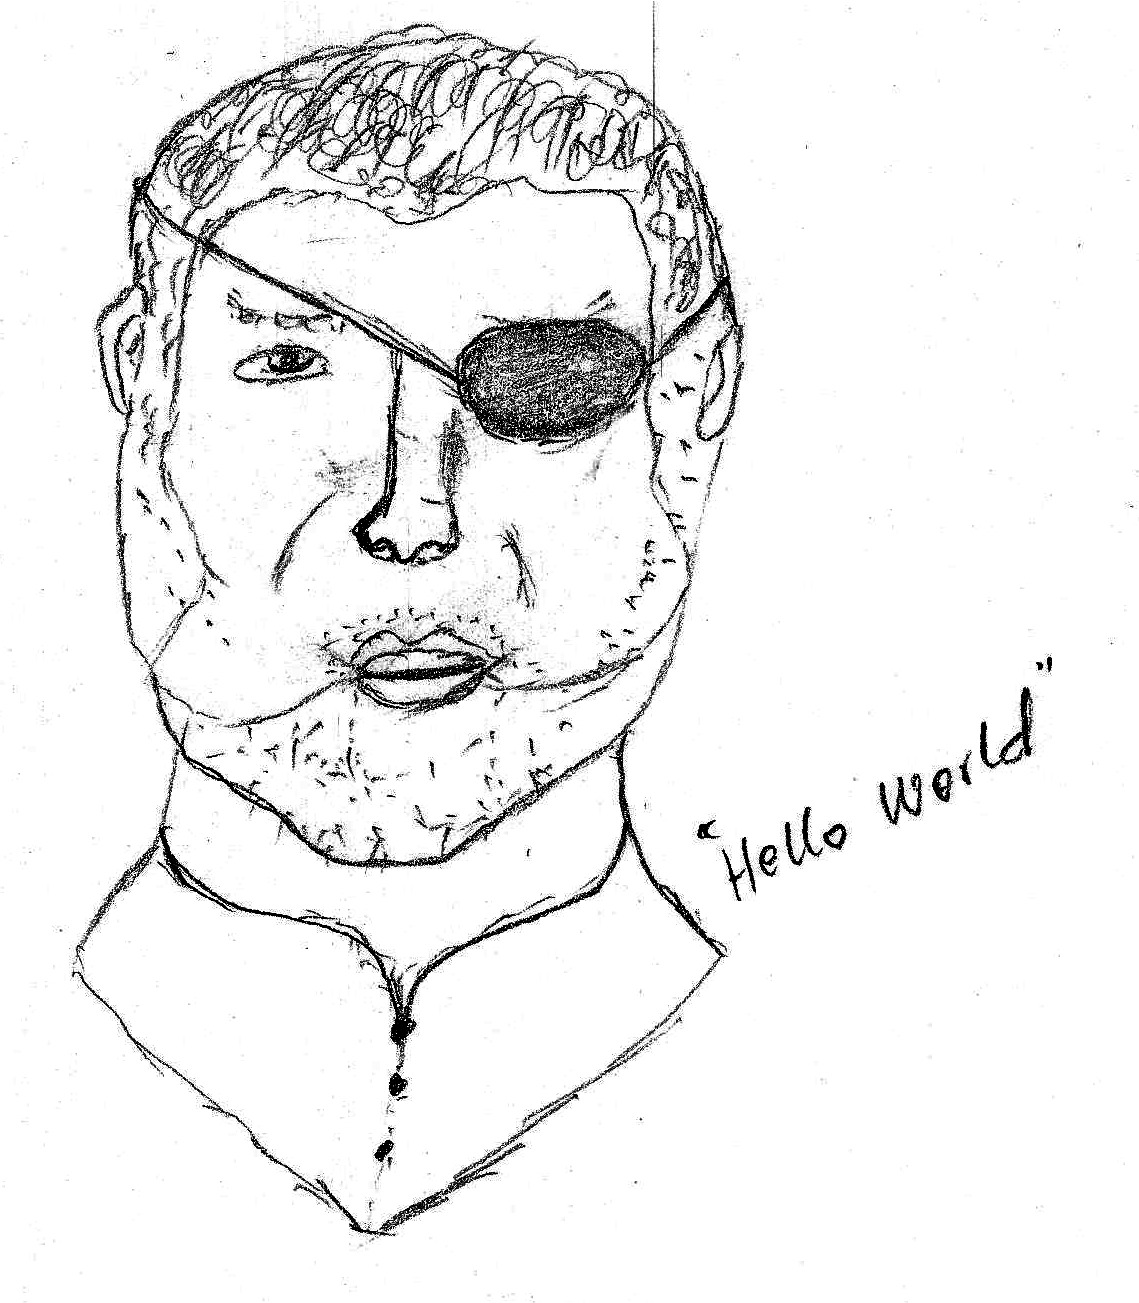 "Hello World"